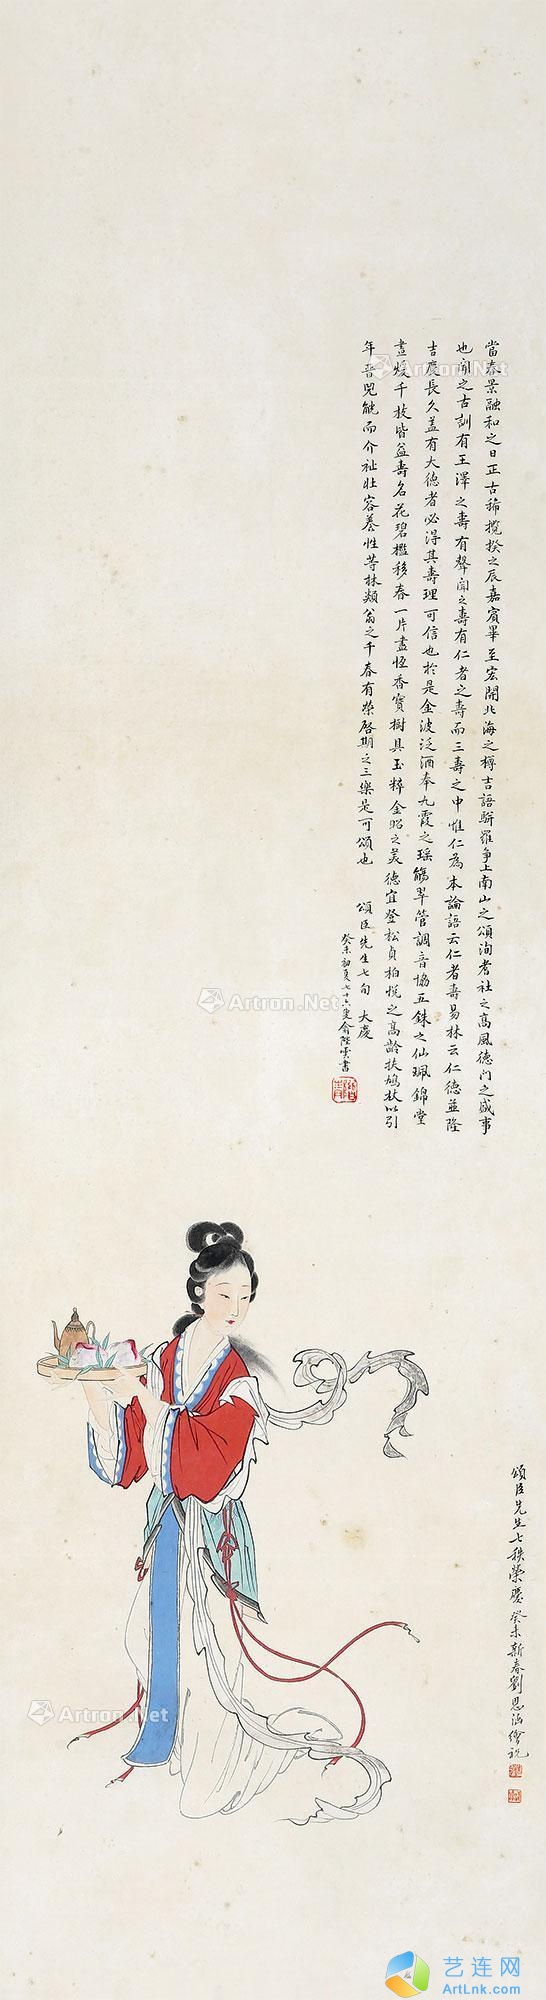 當春景融和之日正古稀攬揆之辰嘉賓畢至宏開北海之樽吉語駢羅爭上南山之頌洵耆社之高風德門之盛事
也聞之古訓有王澤之壽有聲聞之壽有仁者之壽而三壽之中惟仁為本論語云仁者壽易林云仁德並隆
吉慶長久蓋有大德者必得其壽理可信也於是金波泛酒奉九霞之瑤觴翠管調音協五銖之仙珮錦堂
晝煖千枝皆益壽名花碧檻移春一片盡恆香寶樹具玉粹金昭之美德宜登松貞柏悅之高齡扶鳩杖以引
年晉兕觥而介祉壯容養性等林類翁之千春有榮啓期之三樂是可頌也
頌臣先生七旬大慶
癸未初夏七十六叟俞陛雲書
頌臣先生七秩榮慶癸未新春劉思涵繪祝
Artron.Net
Artron.Net
Artron.Net
Artron.Net
艺连网
ArtLnk.com